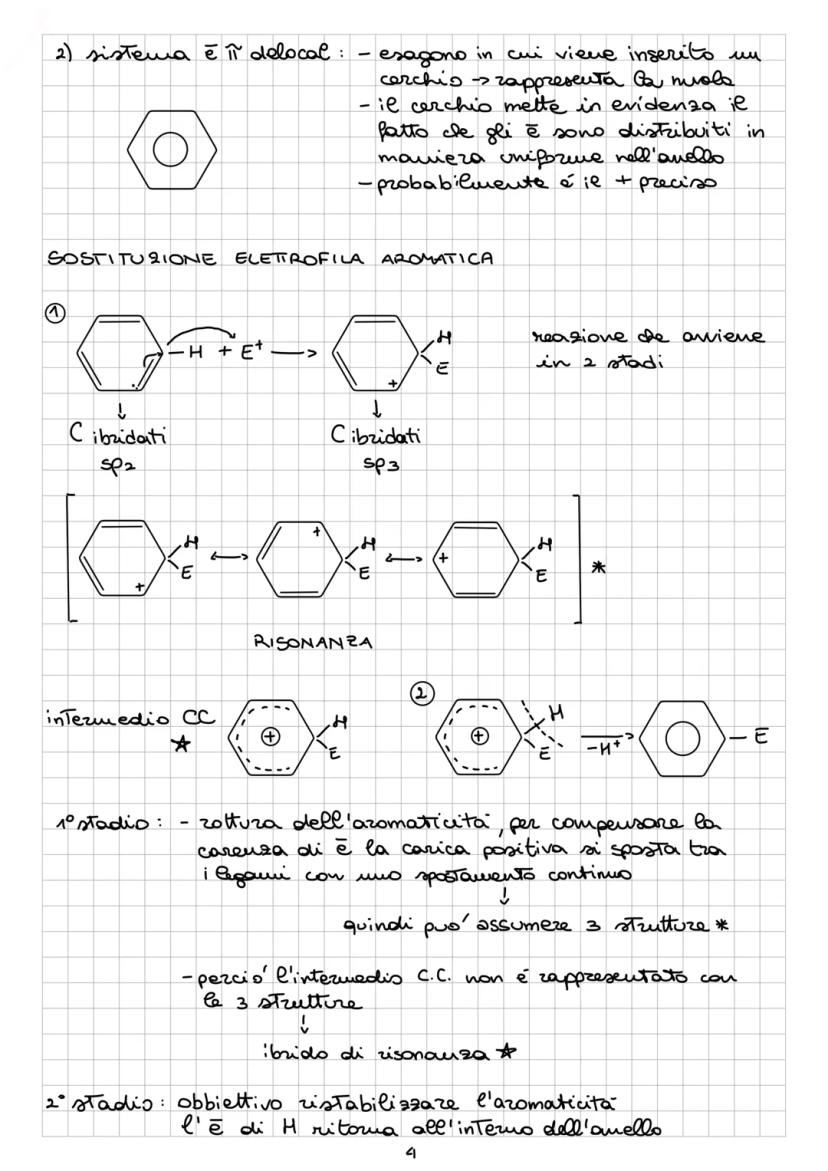 2) sistema ē π delocal : - esagono in cui viene inserito un
cerchio → rappresenta la nuola
- il cerchio mette in evidenza il
fatto che gli ē sono distribuiti in
maniera uniforme nell'anello
- probabilmente é il + preciso
SOSTITUZIONE ELETTROFILA AROMATICA
①
- H + E⁺ →
H
E
+
reazione che avviene
in 2 stadi
↓
C ibridati
sp2
↓
C ibridati
sp3
[ H E + ↔ + H E ↔ + H E ] *
RISONANZA
intermedio CC
☆
+ H E
②
+ H E
-H⁺
- E
1° stadio : - rottura dell'aromaticità, per compensare la
carenza di ē la carica positiva si sposta tra
i legami con uno spostamento continuo
↓
quindi puo' assumere 3 strutture *
- percio' l'intermedio C.C. non é rappresentato con
le 3 strutture
↓
ibrido di risonanza ☆
2° stadio : obbiettivo ristabilizzare l'aromaticità
l'ē di H ritorna all'interno dell'anello
4